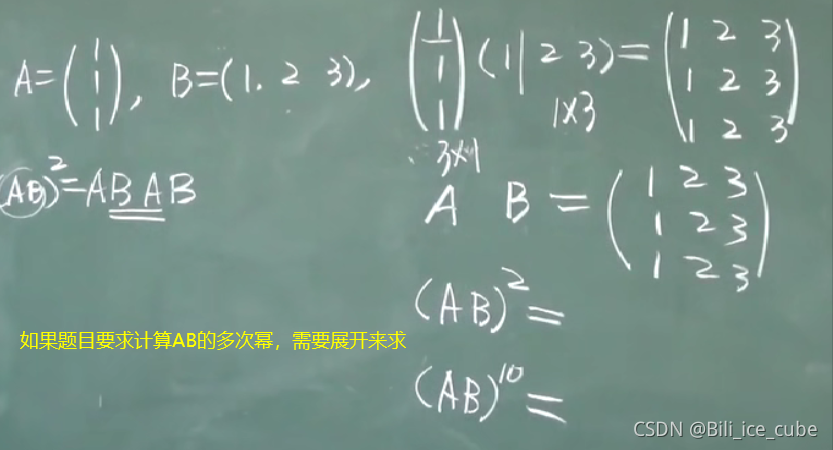 A=(1 1 1), B=(1. 2 3), (1 1 1)(1|2 3)=(1 2 3
1 2 3
1 2 3)
3×1 1×3
(AB)²=ABAB
A B =(1 2 3
1 2 3
1 2 3)
(AB)²=
如果题目要求计算AB的多次幂，需要展开来求
(AB)¹⁰=
CSDN @Bili_ice_cube